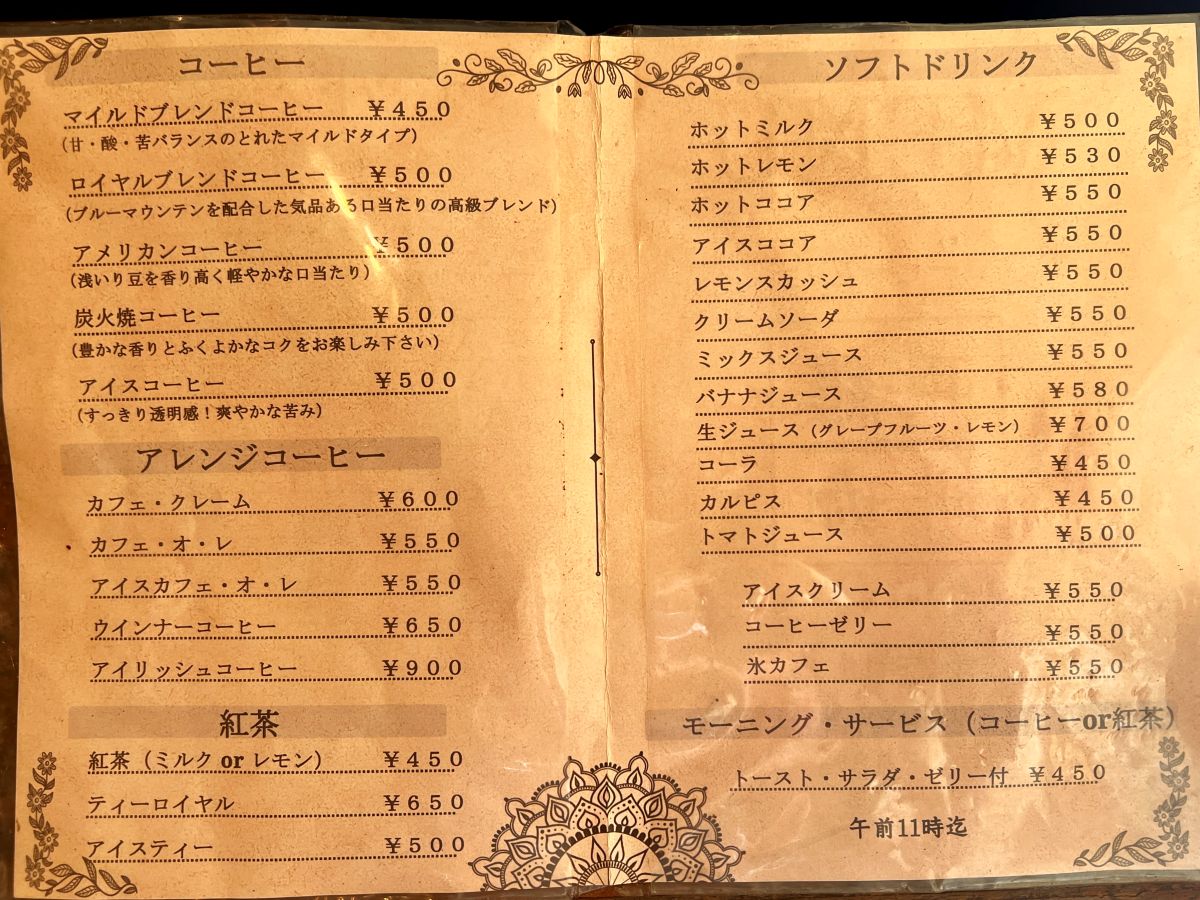 コーヒー
マイルドブレンドコーヒー ￥４５０
（甘・酸・苦バランスのとれたマイルドタイプ）
ロイヤルブレンドコーヒー ￥５００
（ブルーマウンテンを配合した気品ある口当たりの高級ブレンド）
アメリカンコーヒー ￥５００
（浅いり豆を香り高く軽やかな口当たり）
炭火焼コーヒー ￥５００
（豊かな香りとふくよかなコクをお楽しみ下さい）
アイスコーヒー ￥５００
（すっきり透明感！爽やかな苦み）
アレンジコーヒー
カフェ・クレーム ￥６００
カフェ・オ・レ ￥５５０
アイスカフェ・オ・レ ￥５５０
ウインナーコーヒー ￥６５０
アイリッシュコーヒー ￥９００
紅茶
紅茶（ミルク or レモン） ￥４５０
ティーロイヤル ￥６５０
アイスティー ￥５００
ソフトドリンク
ホットミルク ￥５００
ホットレモン ￥５３０
ホットココア ￥５５０
アイスココア ￥５５０
レモンスカッシュ ￥５５０
クリームソーダ ￥５５０
ミックスジュース ￥５５０
バナナジュース ￥５８０
生ジュース（グレープフルーツ・レモン） ￥７００
コーラ ￥４５０
カルピス ￥４５０
トマトジュース ￥５００
アイスクリーム ￥５５０
コーヒーゼリー ￥５５０
氷カフェ ￥５５０
モーニング・サービス（コーヒーor紅茶）
トースト・サラダ・ゼリー付 ￥４５０
午前11時迄